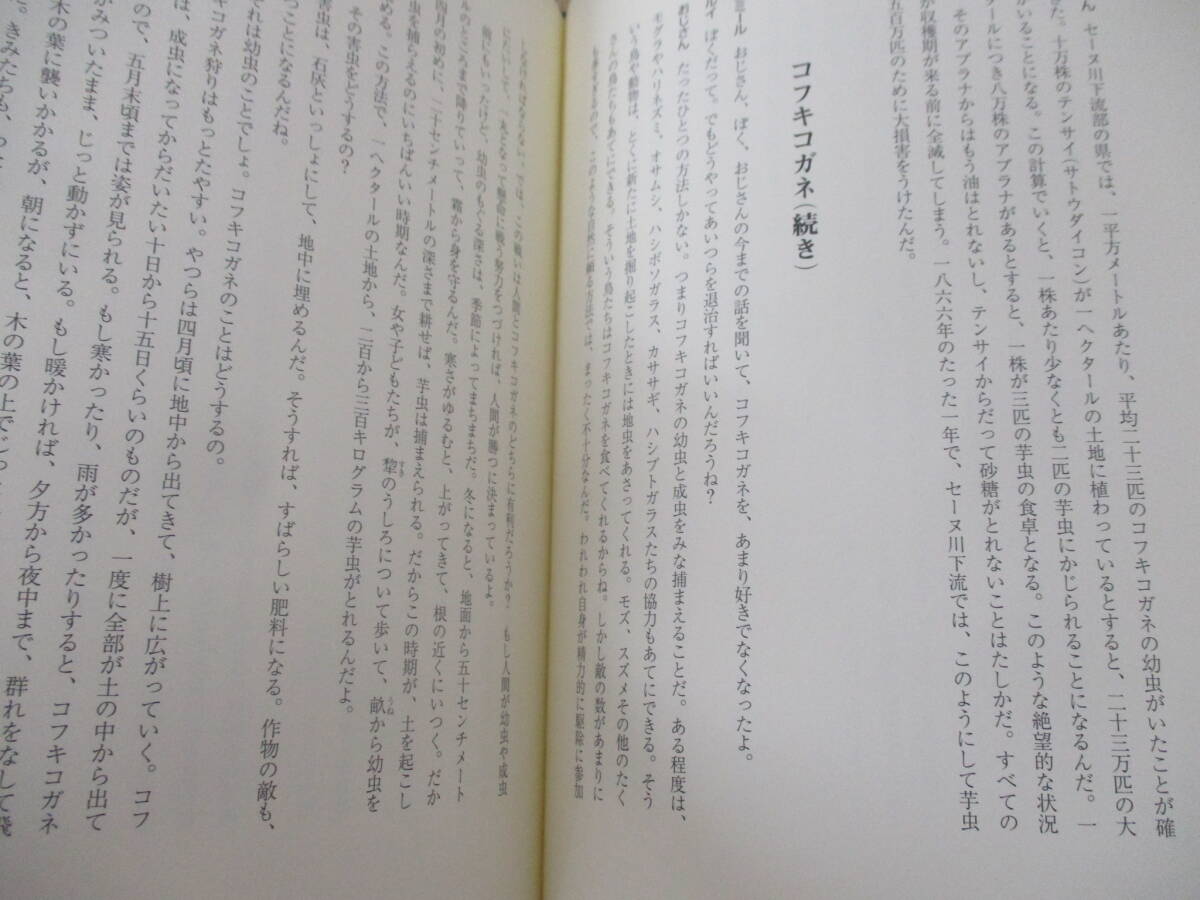 ん　セーヌ川下流部の県では、一平方メートルあたり、平均二十三匹のコフキコガネの幼虫がいたことが確
た。十万株のテンサイ（サトウダイコン）が一ヘクタールの土地に植わっているとすると、二十三万匹の大
がいることになる。この計算でいくと、一株あたり少なくとも二匹の芋虫にかじられることになるんだ。一
タールにつき八万株のアブラナがあるとすると、一株が三匹の芋虫の食卓となる。このような絶望的な状況
、そのアブラナからはもう油はとれないし、テンサイからだって砂糖がとれないことはたしかだ。すべての
が収穫期が来る前に全滅してしまう。一八六六年のたった一年で、セーヌ川下流では、このようにして芋虫
五百万匹のために大損害をうけたんだ。
コフキコガネ（続き）
ミール　おじさん、ぼく、おじさんの今までの話を聞いて、コフキコガネを、あまり好きでなくなったよ。
ルイ　ぼくだって。でもどうやってあいつらを退治すればいいんだろうね？
おじさん　たったひとつの方法しかない。つまりコフキコガネの幼虫と成虫をみな捕まえることだ。ある程度は、
モグラやハリネズミ、オサムシ、ハシボソガラス、カササギ、ハシブトガラスたちの協力もあてにできる。そう
いう鳥や動物は、とくに新たに土地を掘り起こしたときには地虫をあさってくれる。モズ、スズメその他のたく
さんの鳥たちもあてにできる。そういう鳥たちはコフキコガネを食べてくれるからね。しかし敵の数があまりに
も多すぎるので、このような自然に頼る方法では、まったく不十分なんだ。われわれ自身が精力的に駆除に参加
しなければならない。では、この戦いは人間とコフキコガネのどちらに有利だろうか？　もし人間が幼虫や成虫
にたいして、一丸となって懸命に戦う努力をつづければ、人間が勝つに決まっているよ。
前にもいったけど、幼虫のもぐる深さは、季節によってまちまちだ。冬になると、地面から五十センチメート
ルのところまで降りていって、霜から身を守るんだ。寒さがゆるむと、上がってきて、根の近くにいつく。だか
四月の初めに、二十センチメートルの深さまで耕せば、芋虫は捕まえられる。だからこの時期が、土を起こし
虫を捕らえるのにいちばんいい時期なんだ。女や子どもたちが、犂のうしろについて歩いて、畝から幼虫を
める。この方法で、一ヘクタールの土地から、二百から三百キログラムの芋虫がとれるんだよ。
その害虫をどうするの？
害虫は、石灰といっしょにして、地中に埋めるんだ。そうすれば、すばらしい肥料になる。作物の敵も、
つことになるんだね。
それは幼虫のことでしょ。コフキコガネのことはどうするの。
キコガネ狩りはもっとたやすい。やつらは四月頃に地中から出てきて、樹上に広がっていく。コフ
は、成虫になってからだいたい十日から十五日くらいのものだが、一度に全部が土の中から出て
ので、五月末頃までは姿が見られる。もし寒かったり、雨が多かったりすると、コフキコガネ
がみついたまま、じっと動かずにいる。もし暖かければ、夕方から夜中まで、群れをなして飛
木の葉に襲いかかるが、朝になると、木の葉の上でじっ
。きみたちも、